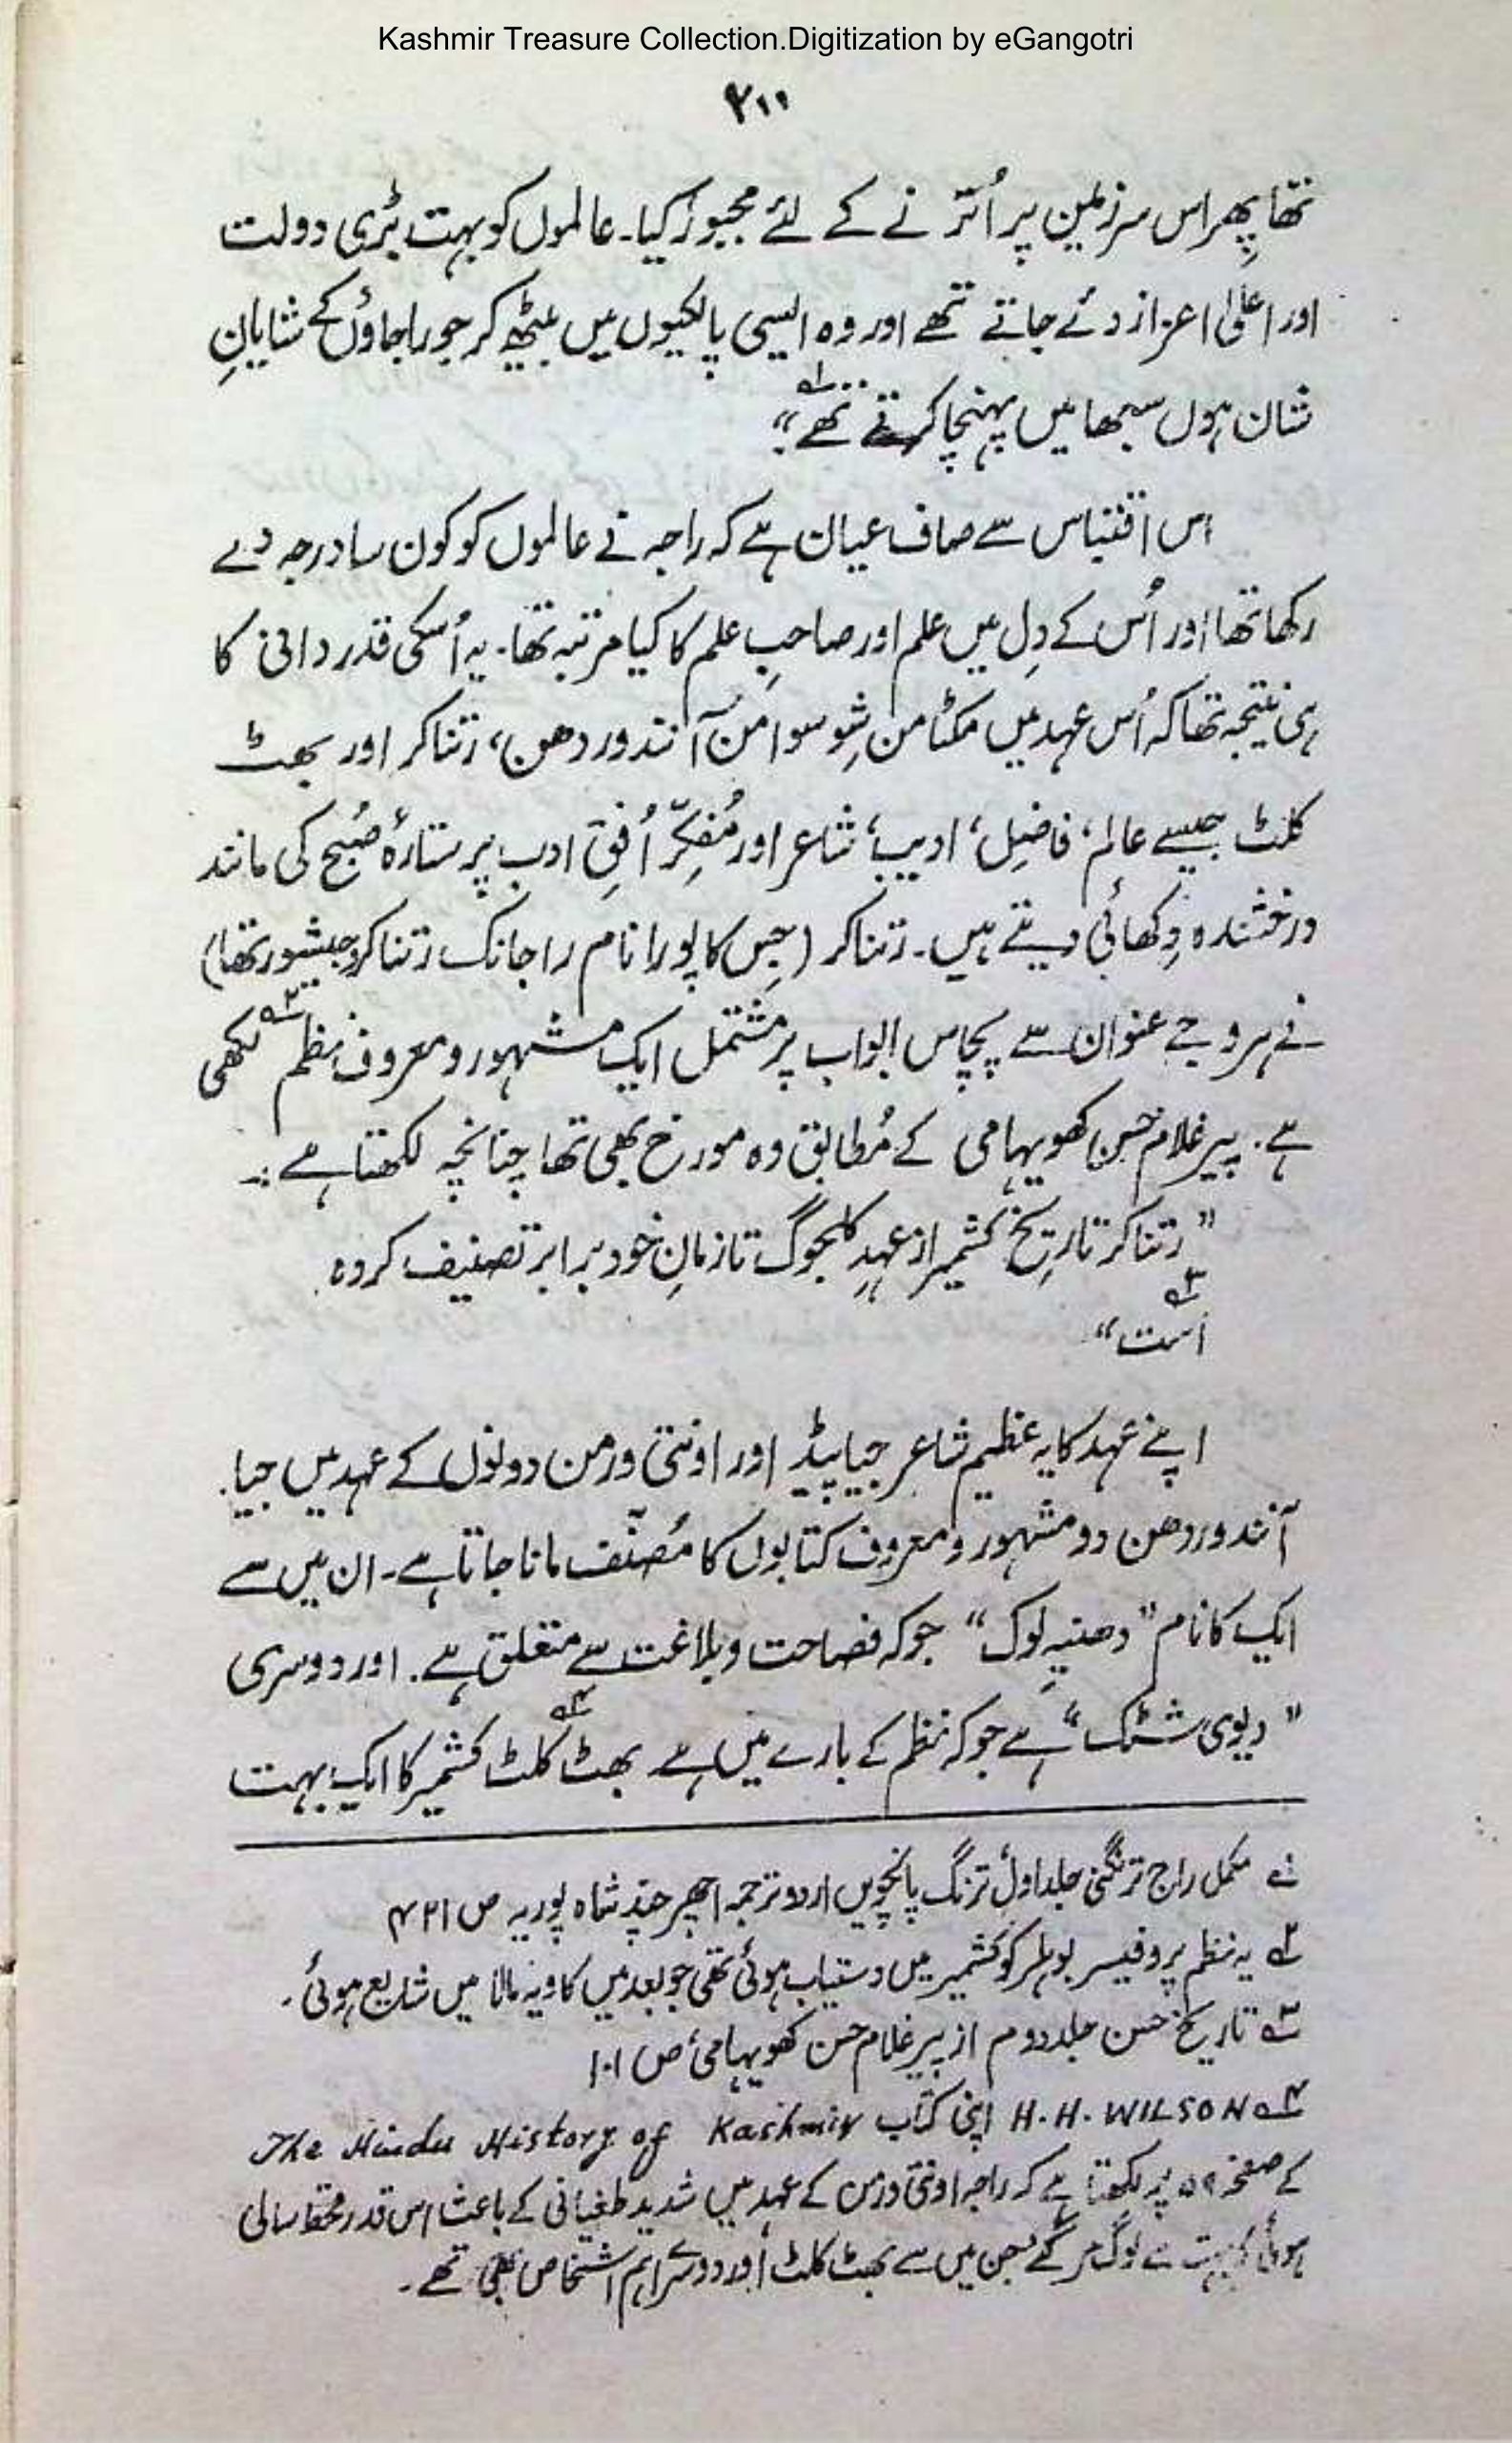 Kashmir Treasure Collection.Digitization by eGangotri
۲۱۱
تھا پھِر اس سرزمین پر اُترنے کے لئے مجبور کیا۔ عالموں کو بہت بڑی دولت
اور اعلیٰ اعزاز دئے جاتے تھے اور وہ ایسی پالکیوں میں بیٹھ کر جو راجاؤں کے شایانِ
شان ہوں سبھا میں پہنچا کرتے تھے“ ۱؎
اس اقتباس سے صاف عیان ہے کہ راجہ نے عالموں کو کون سا درجہ دے
رکھا تھا اور اُس کے دِل میں علم اور صاحبِ علم کا کیا مرتبہ تھا۔ یہ اُسکی قدردانی کا
ہی نتیجہ تھا کہ اُس عہد میں مکتامن شِوسوامن آنندوردھن، رتناکر اور بھٹ
کلٹ جیسے عالِم، فاضِل، ادیب، شاعر اور مُفکِّر اُفقِ ادب پر ستارۂ صُبح کی مانند
درخشندہ دِکھائی دیتے ہیں۔ رتناکر (جِس کا پورا نام راجانک رتناکر جیشور تھا)
نے ہروجے عنوان سے پچاس ابواب پر مشتمل ایک مشہور و معروف نظم ۲؎ لکھی
ہے۔ پیر غلام حسن کھویہامی کے مُطابق وہ مورخ بھی تھا چنانچہ لکھتا ہے :۔
”رتناکر تاریخِ کشمیر از عہدِ کلجوگ تا زمانِ خود برابر تصنیف کردہ
است“ ۳؎
اپنے عہد کا یہ عظیم شاعر جیاپیڈ اور اونتی ورمن دونوں کے عہد میں جیا۔
آنندوردھن دو مشہور و معروف کتابوں کا مُصنّف مانا جاتا ہے۔ ان میں سے
ایک کا نام ”دھنیہِ لوک“ جو کہ فصاحت و بلاغت سے متعلق ہے۔ اور دوسری
”دیوی شٹک“ ہے جو کہ نظم کے بارے میں ہے بھٹ کلٹ ۴؎ کشمیر کا ایک بہت
۱؎ مکمل راج ترنگنی جلد اول ترنگ پانچویں اردو ترجمہ اچھر چند شاہ پوریہ ص ۴۲۱
۲؎ یہ نظم پروفیسر بوہلر کو کشمیر میں دستیاب ہوئی تھی جو بعد میں کاویہ مالا میں شایع ہوئی۔
۳؎ تاریخ حسن جلد دوم از پیر غلام حسن کھویہامی ص ۱۰۱
۴؎ H.H. WILSON اپنی کتاب The Hindu History of Kashmir
کے صفحہ ۵۹ پر لکھتا ہے کہ راجہ اونتی ورمن کے عہد میں شدید طغیانی کے باعث اس قدر قحط سالی
ہوئی کہ بہت سے لوگ مر گئے جن میں سے بھٹ کلٹ اور دوسرے اہم اشخاص بھی تھے۔